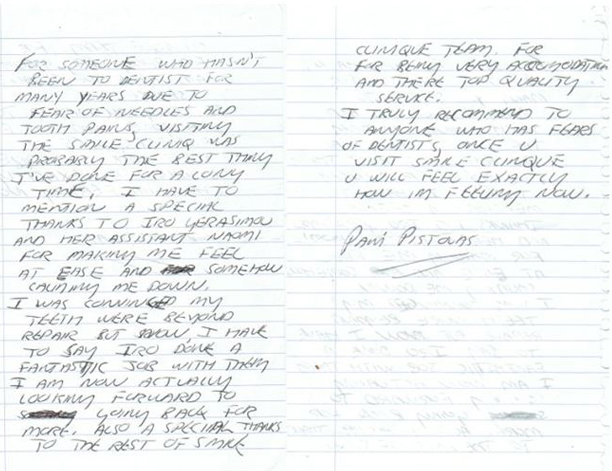 FOR SOMEONE WHO HASN'T
BEEN TO DENTIST FOR
MANY YEARS DUE TO
FEAR OF NEEDLES AND
TOOTH PAINS, VISITING
THE SMILE CLINIQ WAS
PROBABLY THE BEST THING
I'VE DONE FOR A LONG
TIME. I HAVE TO
MENTION A SPECIAL
THANKS TO IRO GERASIMOU
AND HER ASSISTANT NAOMI
FOR MAKING ME FEEL
AT EASE AND SOMEHOW
CALMING ME DOWN.
I WAS CONVINCED MY
TEETH WERE BEYOND
REPAIR BUT I HAVE
TO SAY IRO DONE A
FANTASTIC JOB WITH THEM
I AM NOW ACTUALLY
LOOKING FORWARD TO
GOING BACK FOR
MORE. ALSO A SPECIAL THANKS
TO THE REST OF SMILE
CLINIQUE TEAM. FOR
FOR BEING VERY ACCOMODATING
AND THERE TOP QUALITY
SERVICE.
I TRULY RECOMMEND TO
ANYONE WHO HAS FEARS
OF DENTISTS, ONCE U
VISIT SMILE CLINIQUE
U WILL FEEL EXACTLY
HOW IM FEELING NOW.